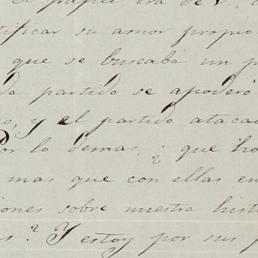 el papel era de
tificar su amor propio
que se buscaba un p
da partido se apoderó
o, y el partido ataca
Por lo demas ¿que ho
mas que con ellas en
iones sobre nuestra hist
s? Y estoy por sus p